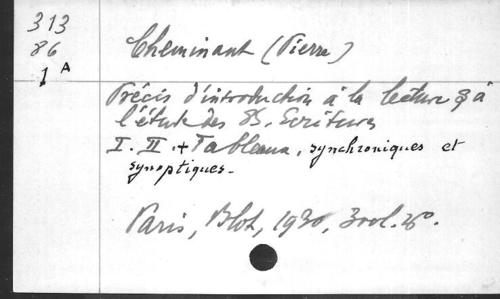 313
86
1 A
Cheminant (Pierre)
Précis d'introduction à la lecture & à
l'étude des Stes Ecritures
I. II. + Tableaux, synchroniques et
synoptiques.
Paris, Blot, 1930, 3 vol. 8°.